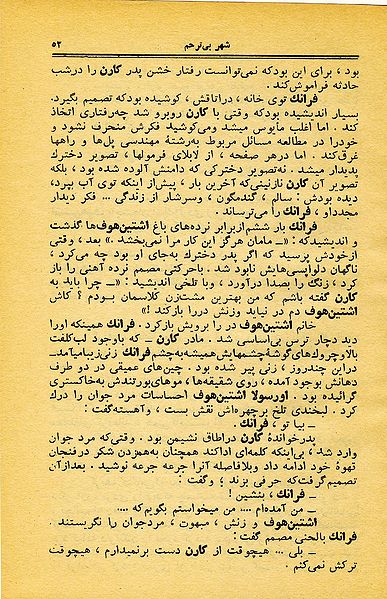 شهر بی‌ترحم ۵۲
بود ، برای این بودکه نمی‌توانست رفتار خشن پدر کارن را درشب
حادثه فراموش‌کند .
فرانك توی خانه ، دراتاقش ، کوشیده بودکه تصمیم بگیرد.
بسیار اندیشیده بودکه وقتی با کارن روبرو شد چه‌رفتاری اتخاذ
کند . اما اغلب مایوس میشد ومی‌کوشید فکرش منحرف نشود و
خودرا در مطالعه مسائل مربوط به‌رشتهٔ مهندسی پل‌ها و راهها
غرق‌کند . اما درهر صفحه ، از لابلای فرمولها ، تصویر دخترك
پدیدار میشد . نه‌تصویر دخترکی که دامنش آلوده شده بود ، بلکه
تصویر آن کارن نازنینی‌که آخرین بار ، پیش‌از اینکه توی آب بپرد،
دیده بودش : سالم ، گندمگون ، وسرشار از زندگی ... فکر دیدار
مجدداو ، فرانك را می‌ترساند .
فرانك بار ششم‌ازبرابر نرده‌های باغ اشتین‌هوف‌ها گذشت
و اندیشیدکه : «ــ مامان هرگز این کار مرا نمی‌بخشد .» بعد ، وقتی
ازخودش پرسید که اگر پدر دخترك به‌جای او بود چه می‌کرد ،
ناگهان دلواپسی‌هایش نابود شد . باحرکتی مصمم نرده آهنی را باز
کرد ، زنگ را بصدا درآورد ، وبا تلخی اندیشید : «ــ چرا باید به
کارن گفته باشم که من بهترین مشت‌زن کلاسمان بودم ؟ کاش
اشتین‌هوف دم در نیاید وزنش دررا بازکند !»
خانم اشتین‌هوف در را برویش بازکرد . فرانك همینکه اورا
دید دچار ترس بی‌اساسی شد . مادر کارن ــ که باوجود لب‌کلفت
بالاو چروك‌های گوشهٔ چشمهایش همیشه‌به‌چشم فرانك زنی‌زیبامیآمدــ
دراین چندروز ، زنی پیر شده بود . چین‌های عمیقی در دو طرف
دهانش بوجود آمده ، روی شقیقه‌ها ، موهای‌بورتندش به‌خاکستری
گرائیده بود . اورسولا اشتین‌هوف احساسات مرد جوان را درك
کرد . لبخندی تلخ برچهره‌اش نقش بست ، وآهسته‌گفت :
ــ بیا تو ، فرانك .
پدرخواندهٔ کارن دراطاق نشیمن بود . وقتی‌که مرد جوان
وارد شد ، بی‌اینکه کلمه‌ای اداکند همچنان به‌همزدن شکر درفنجان
قهوهٔ خود ادامه داد وبلافاصله آنرا جرعه جرعه نوشید . بعدازآن
تصمیم گرفت‌که حرفی بزند ؛ وگفت :
ــ فرانك ، بنشین !
ــ من آمده‌ام .... من میخواستم بگویم که ....
اشتین‌هوف و زنش ، مبهوت ، مردجوان را نگریستند .
فرانك بالحنی مصمم گفت :
ــ بلی ... هیچوقت از کارن دست برنمیدارم ، هیچوقت
ترکش نمی‌کنم .